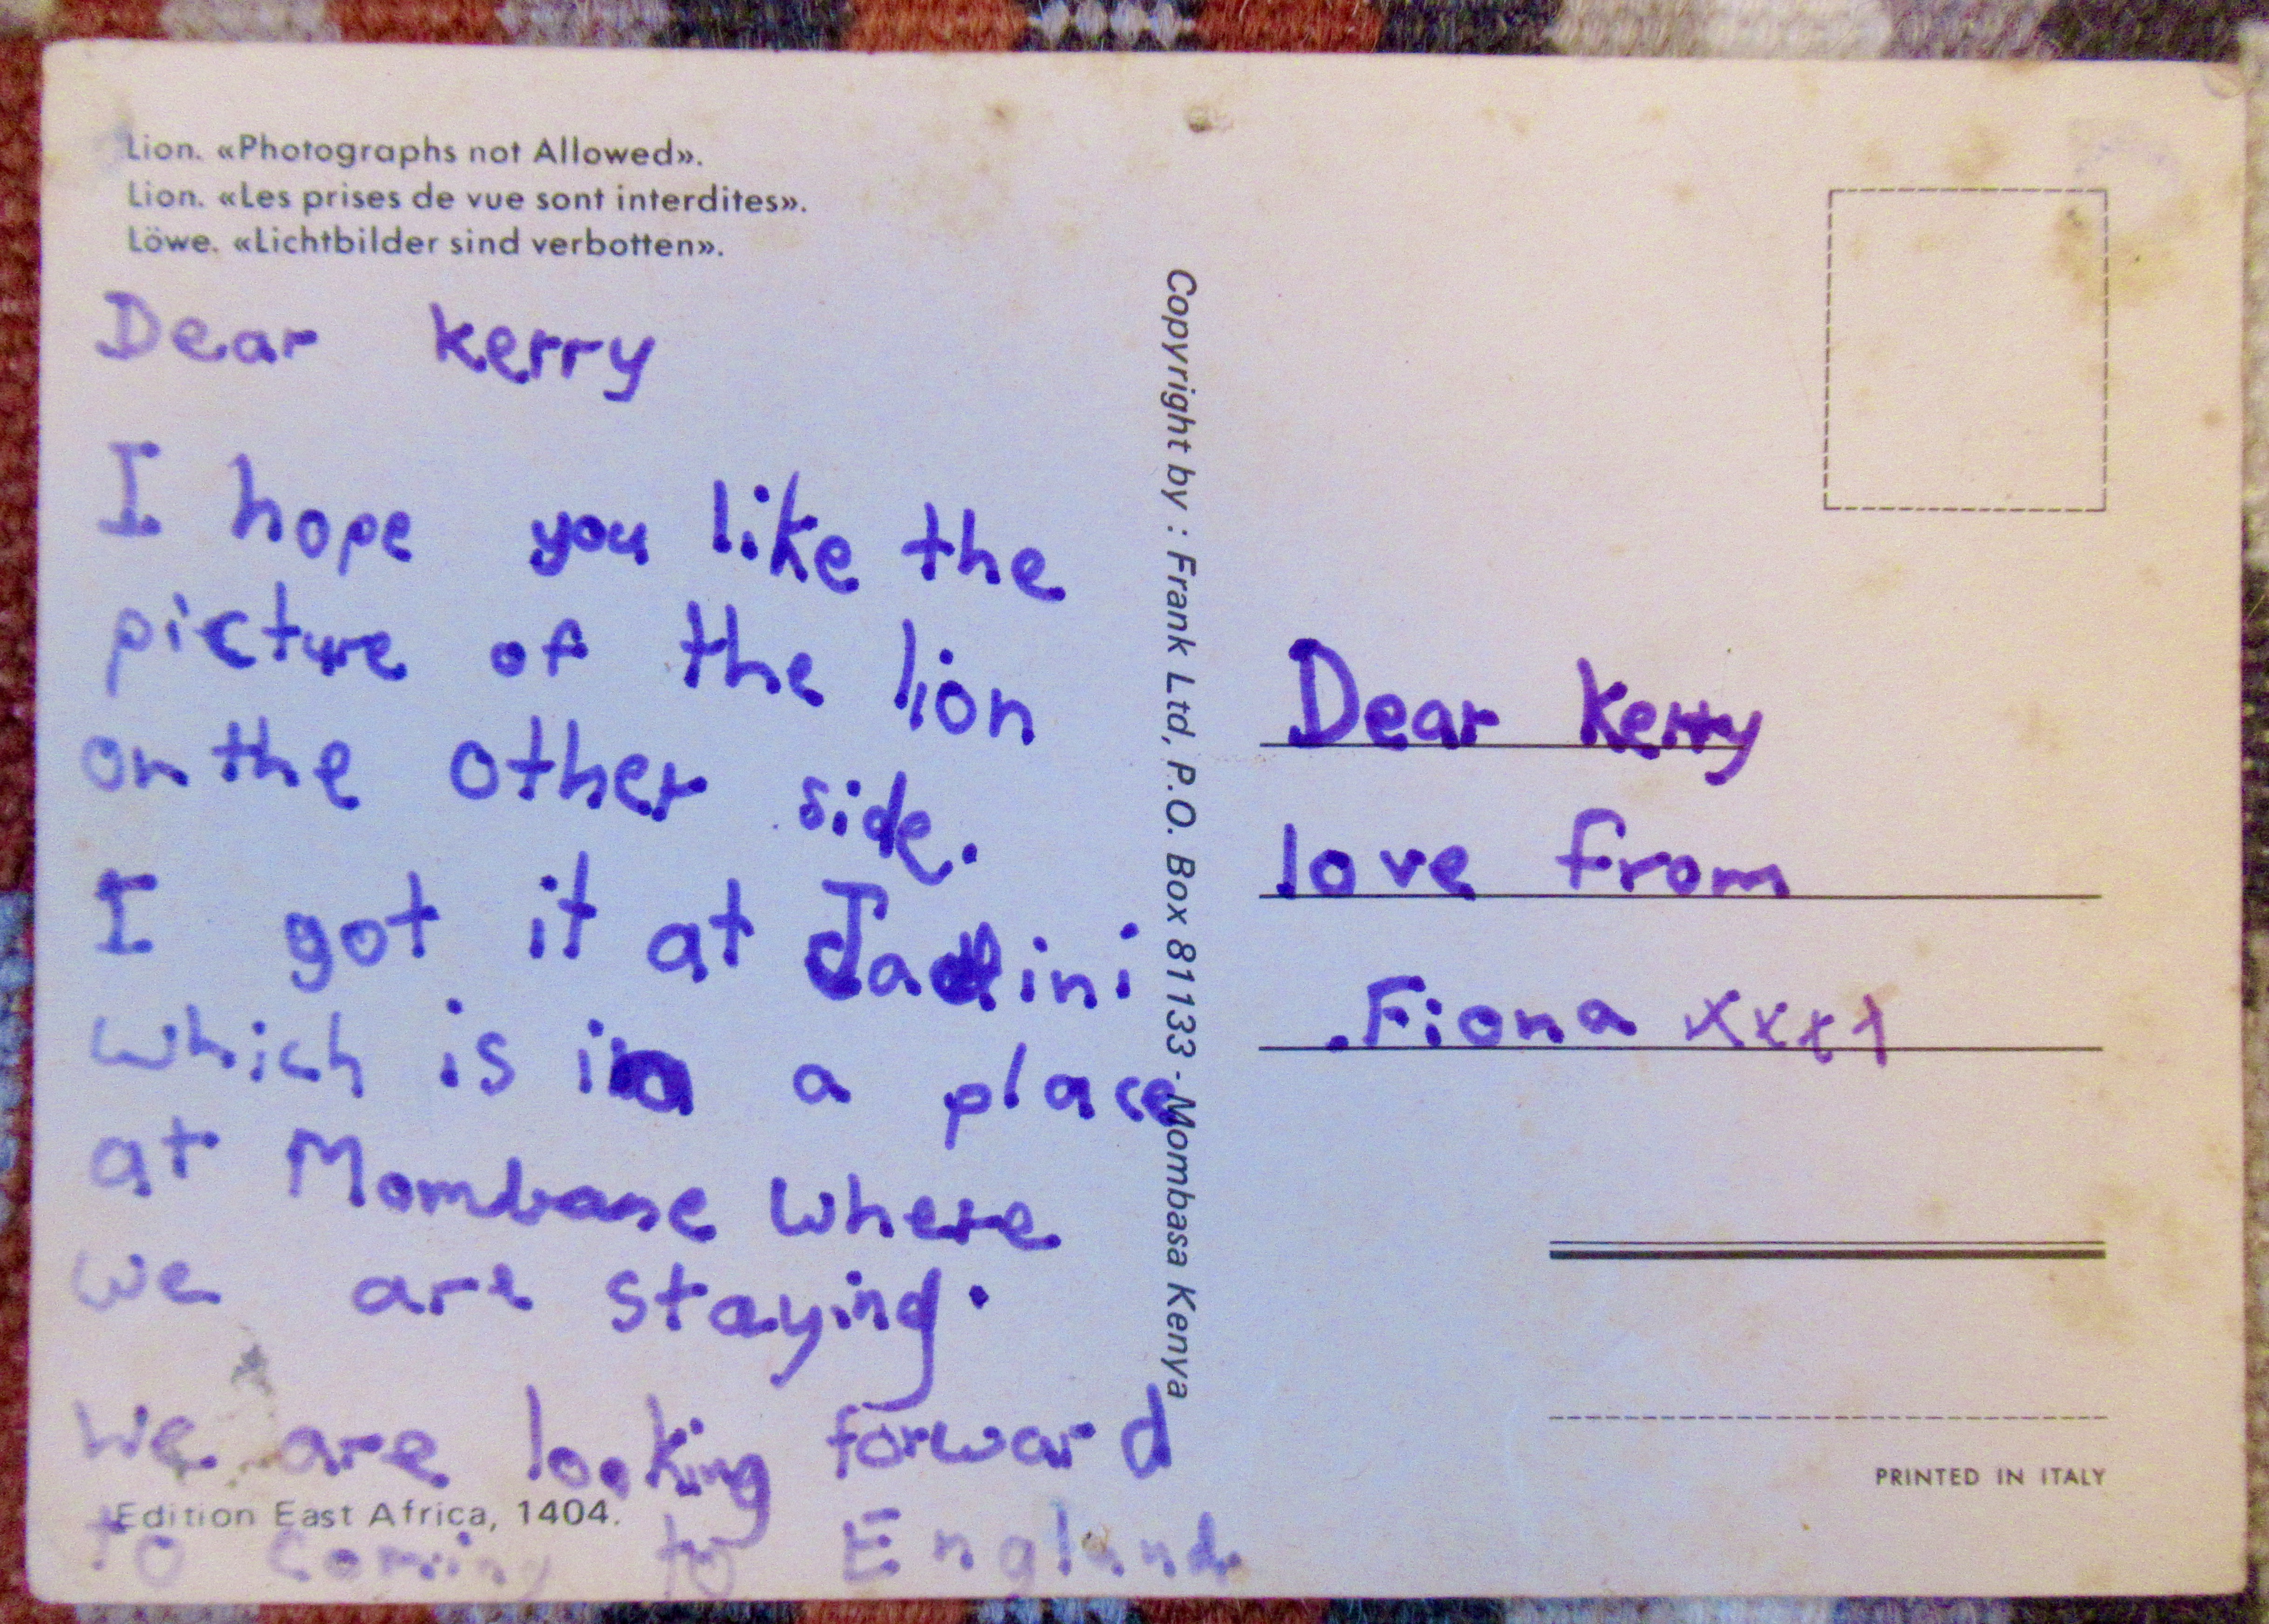 Lion. «Photographs not Allowed».
Lion. «Les prises de vue sont interdites».
Löwe. «Lichtbilder sind verbotten».
Dear kerry
I hope you like the
picture of the lion
on the other side.
I got it at Jadini
which is in a place
at Mombase where
we are staying.
We are looking forward
Edition East Africa, 1404.
to coming to England
Copyright by : Frank Ltd, P.O. Box 81133 - Mombasa Kenya
Dear kerry
love from
.Fiona xxxx
PRINTED IN ITALY